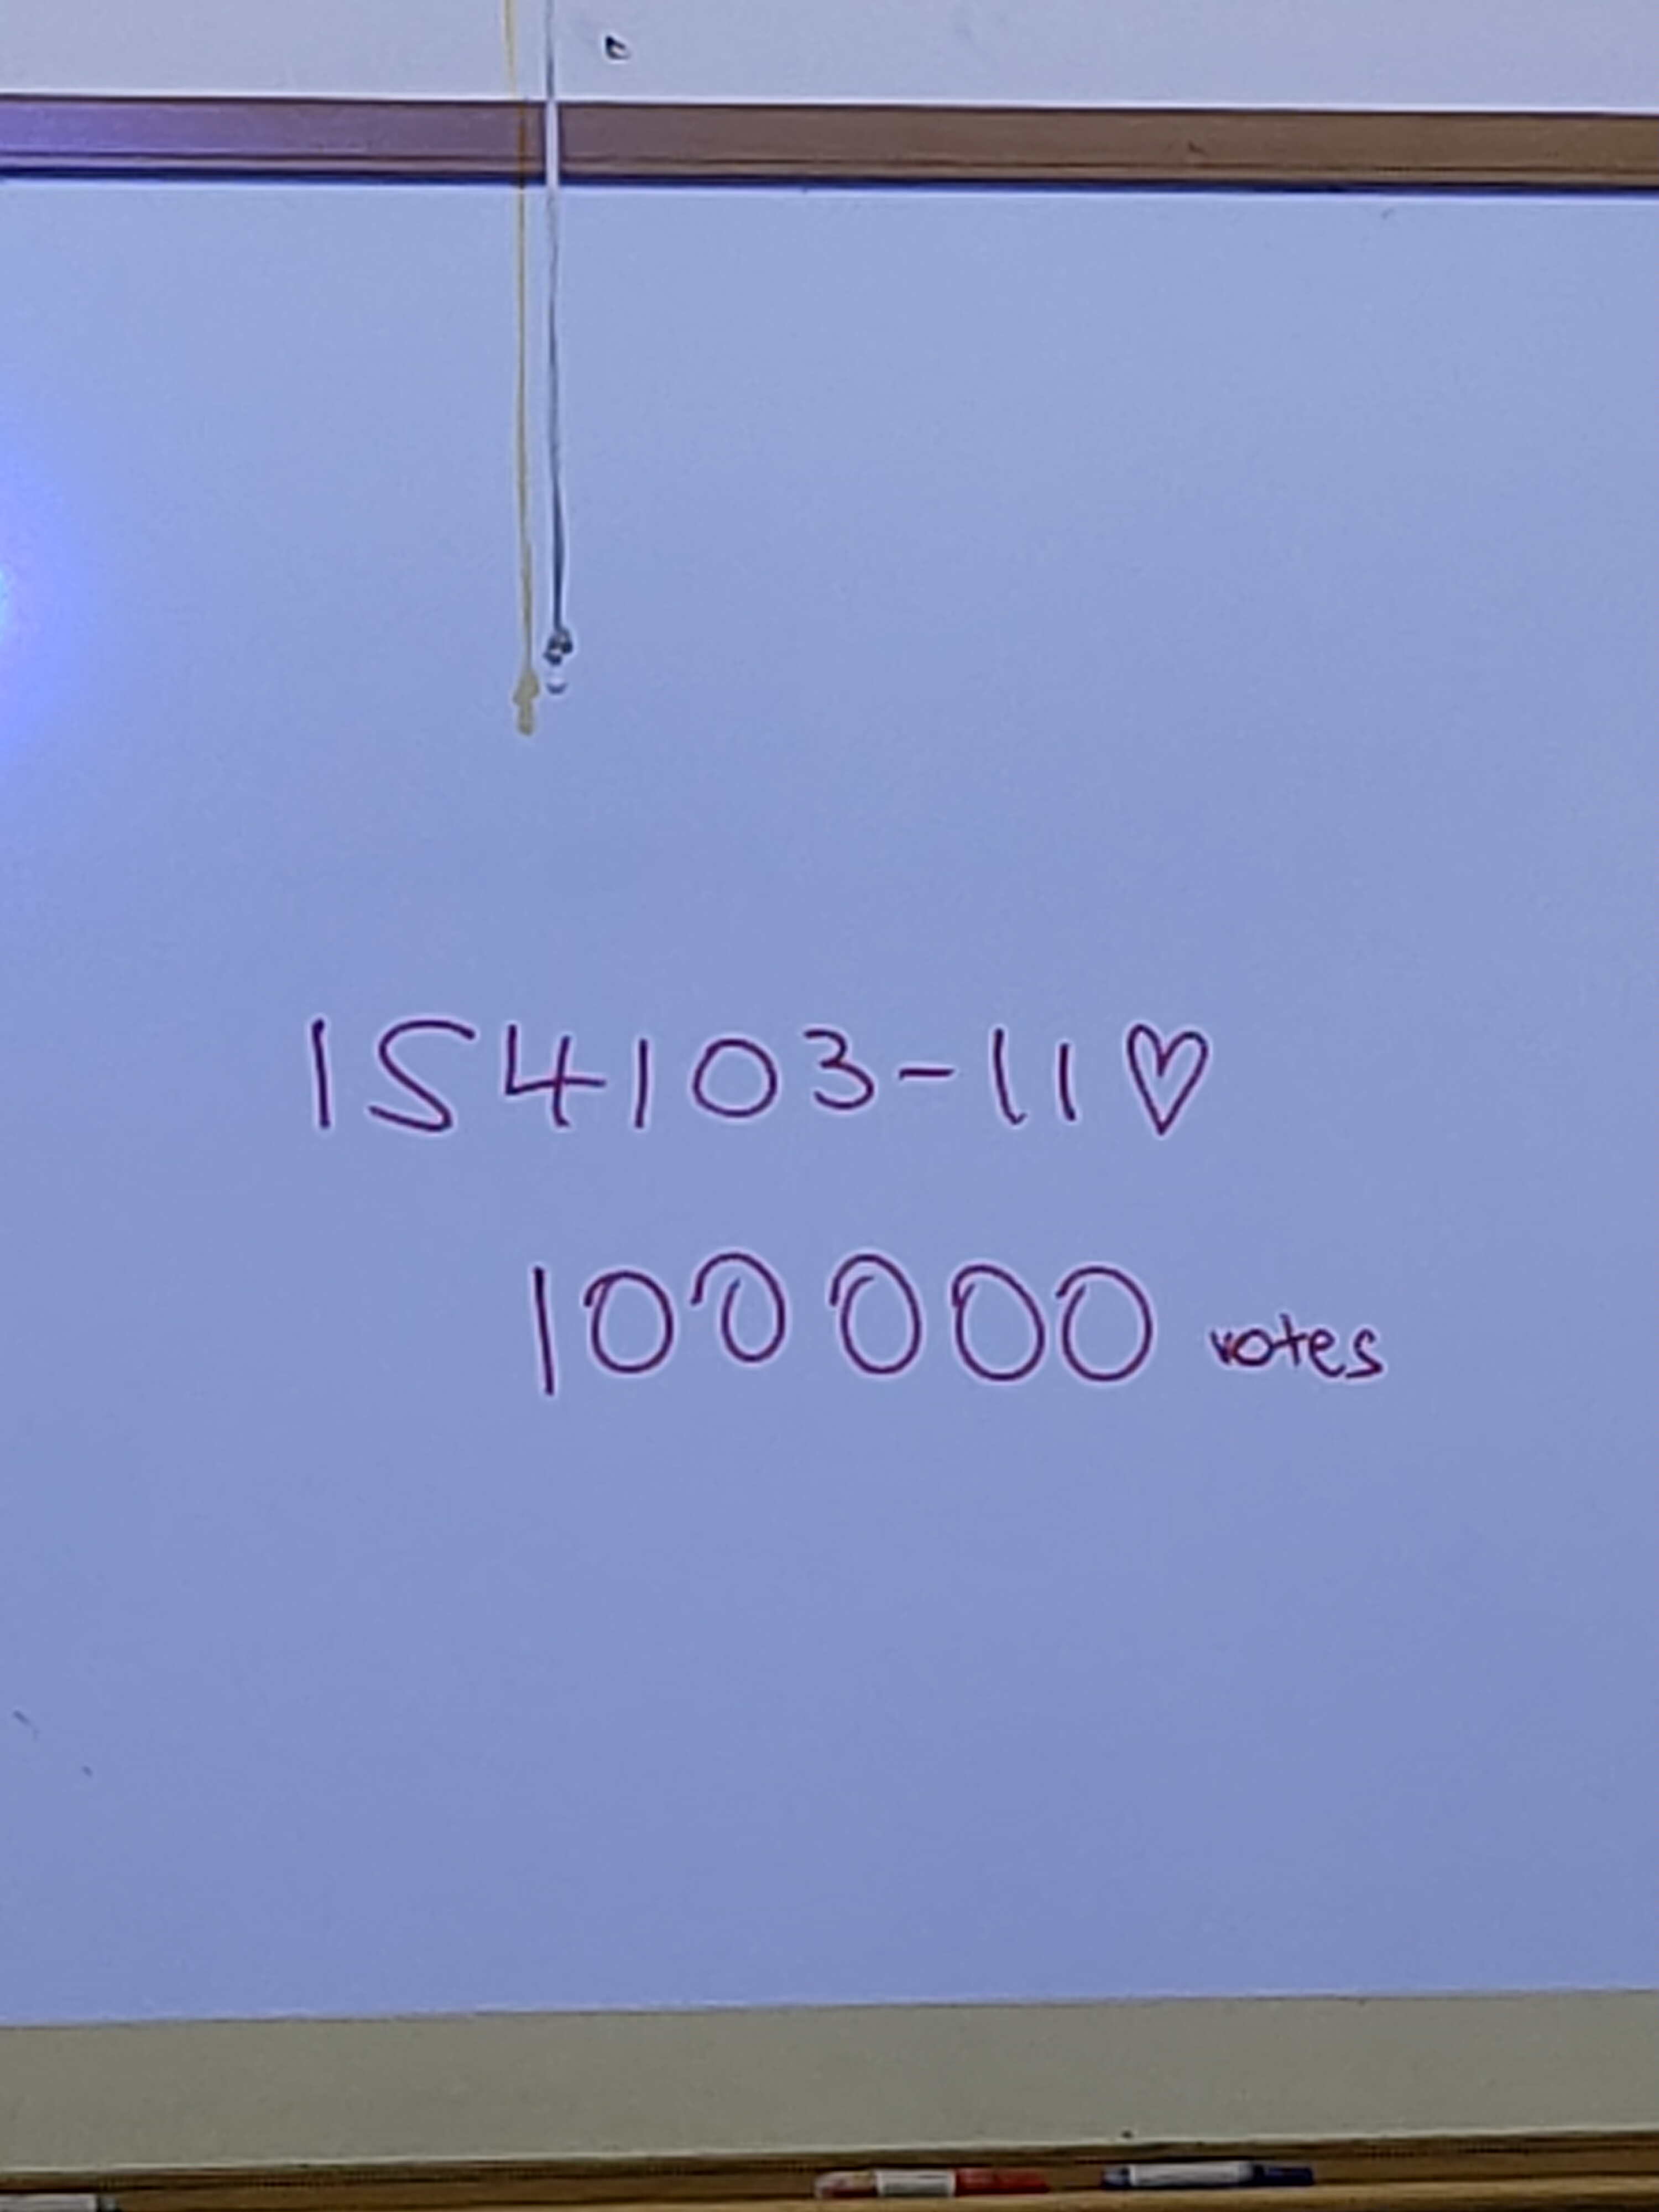 IS4103-11♡
100000 votes